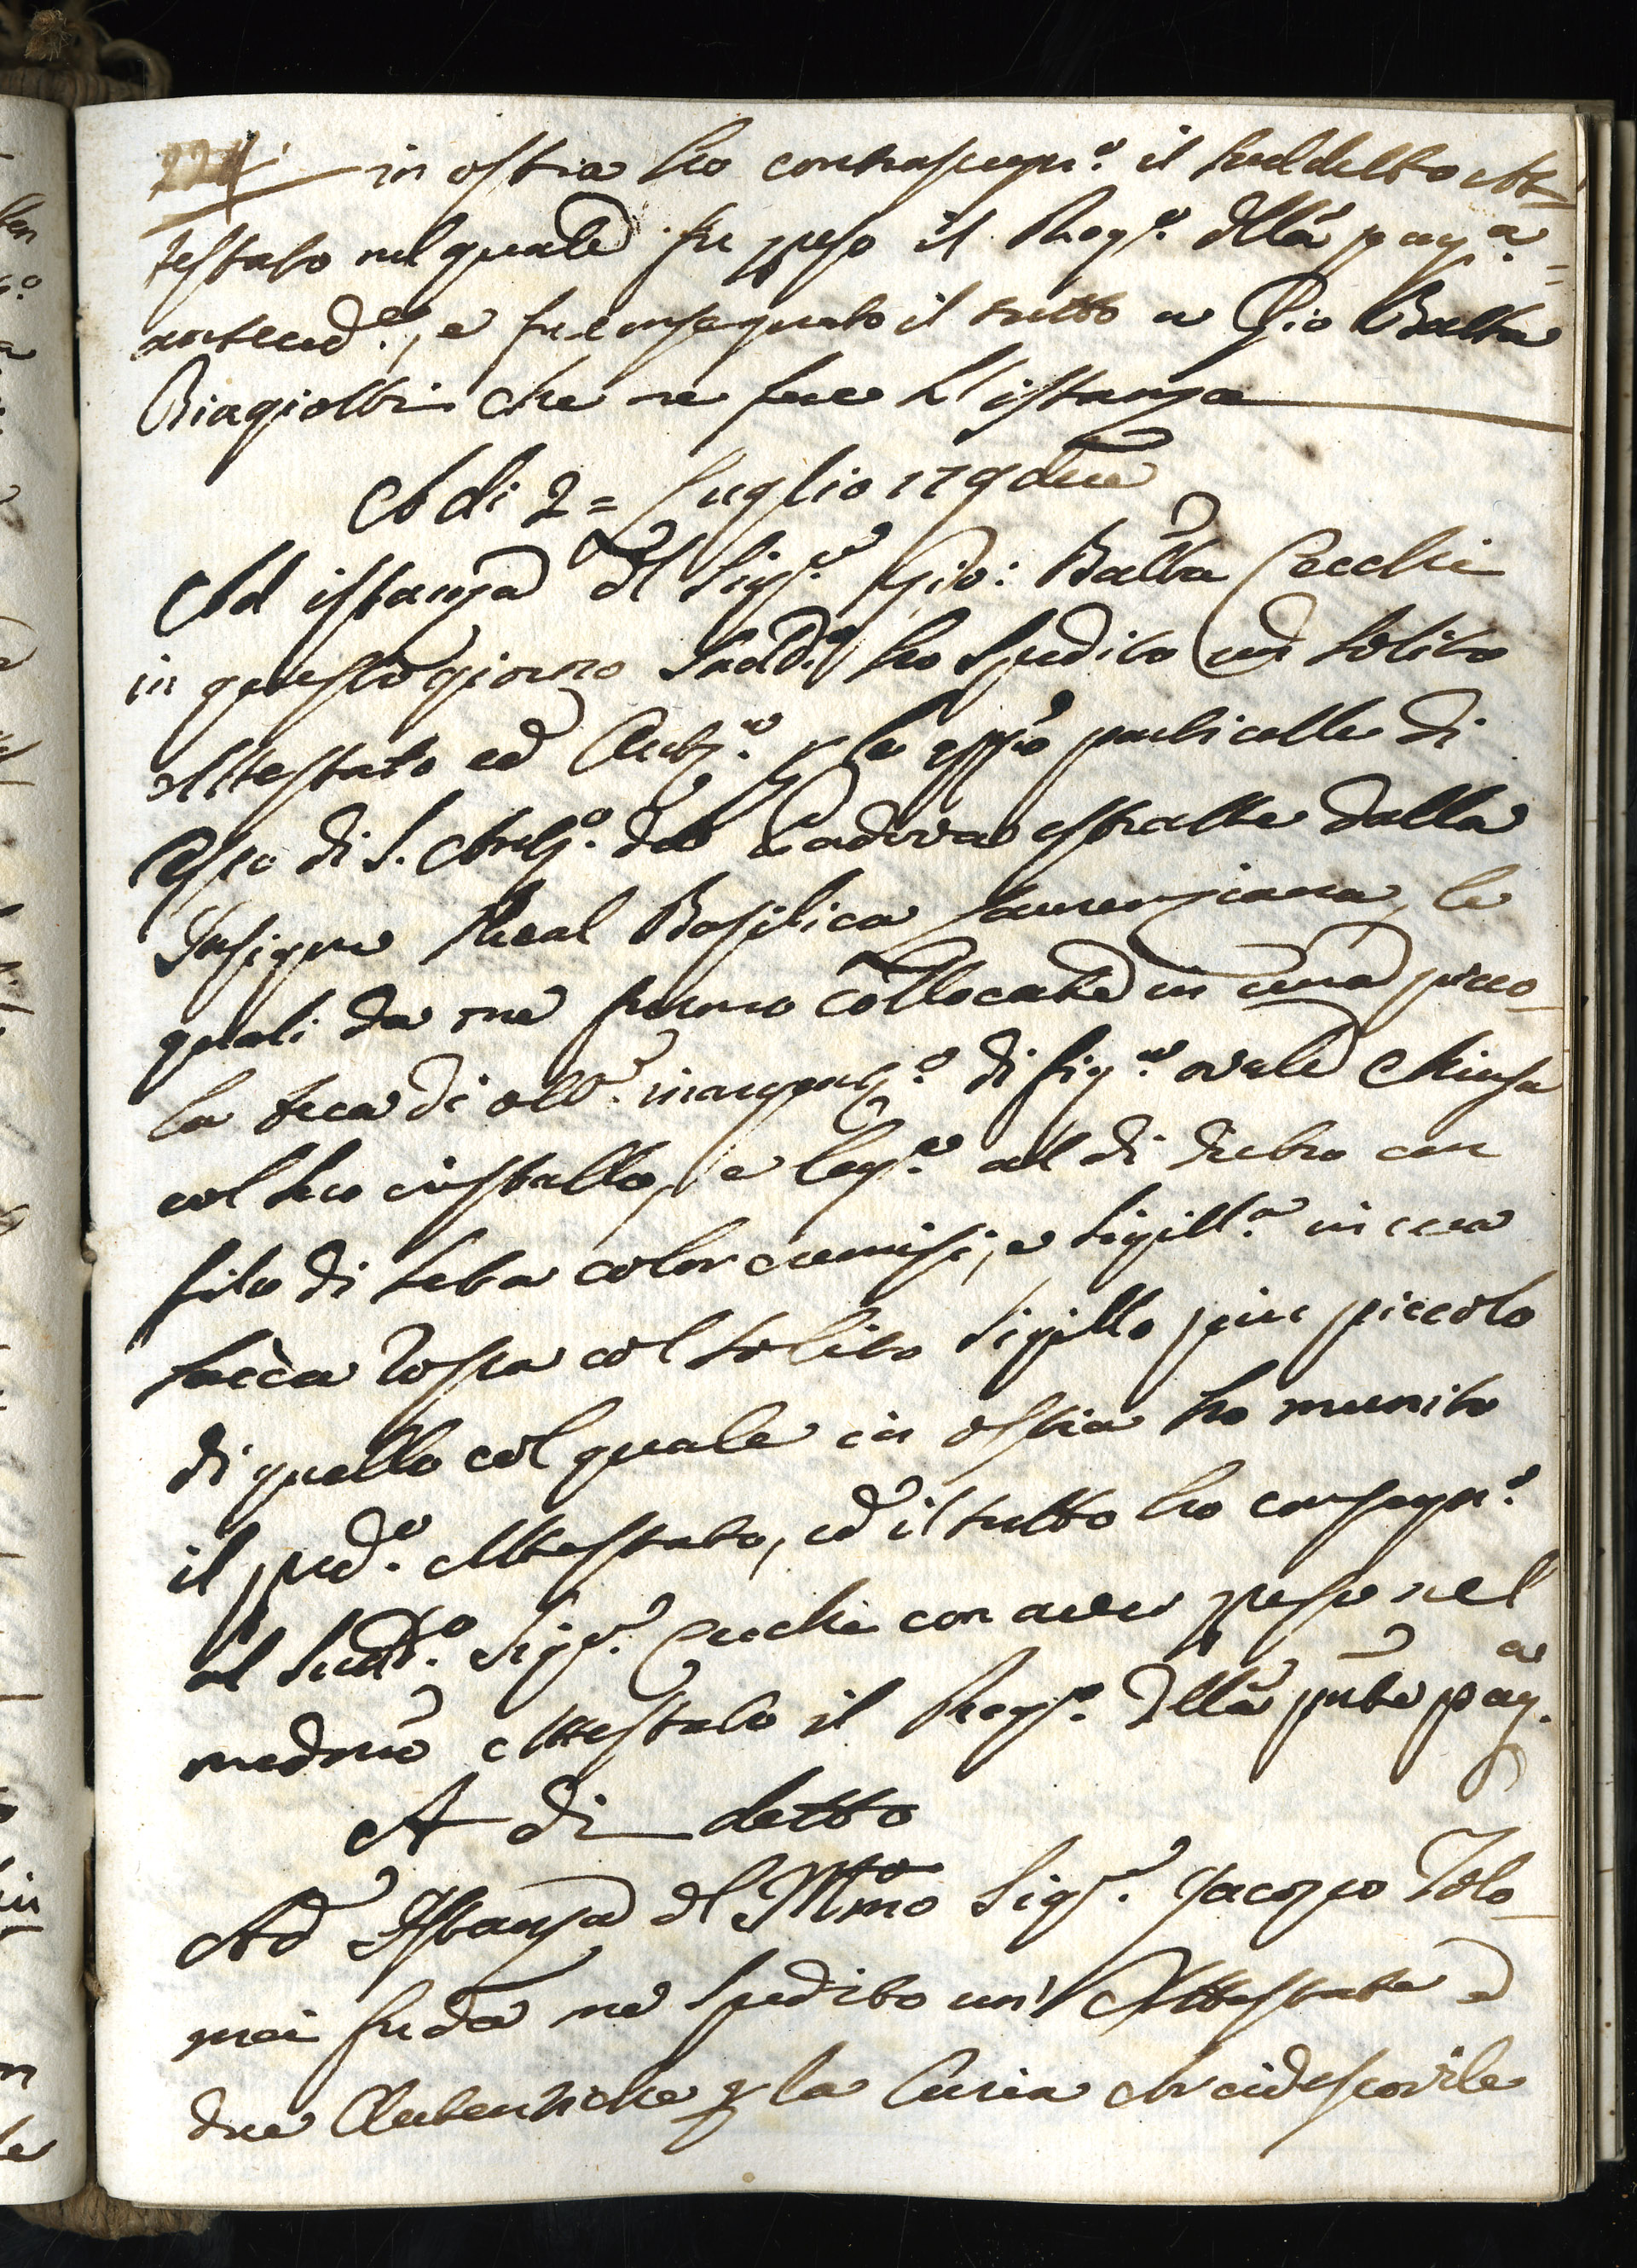 224 in ostia ho contrasegn.º il suddetto At=
testato nel quale fu ppeso il Reg.º dlla pag.ª
anteced.e, e fu consegnato il tutto a Gio Batta
Biagiotti che ne fece l'istanza
A di 2= Luglio 179due
Ad istanza dl Sig.re Gio: Batta Cecchi
in questo giorno sudd.º ho spedito un solito
Attestato ed Aut.ca p le particelle di
Osso di S. Ant.º da Padova estratte dalla
Insigne Real Basilica Laurenziana, le
quali da me furono collocate in una picco-
la teca di ott.e inargent.º di fig.ª ovale chiusa
col suo cristallo, e leg.ª al di dietro con
filo di seta color cremisi, e sigill.ª in cera
lacca rossa col solito sigillo piu piccolo
di quello col quale in ostia ho munito
il pred.º Attestato, ed il tutto ho consegn.º
al sudd.º Sig.re Cecchi con aver ppeso nel
medmo Attestato il Reg.º dlla pnte pag.ª
A di detto
Ad Istanza dl Illmo Sig.re Jacopo Tolo-
mei fu da me spedito un' Attestato e
due Autentiche p la Curia Arcivescovile